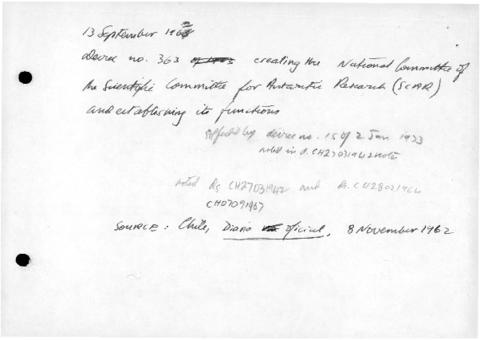 13 September 1962
Decree no. 363 creating the National Committee of
the Scientific Committee for Antarctic Research (SCAR)
and establishing its functions
by decree no. 15 of 2 Jan 1973
noted in
noted CH27031942 and
CH07091967
SOURCE: Chile, Diario oficial, 8 November 1962